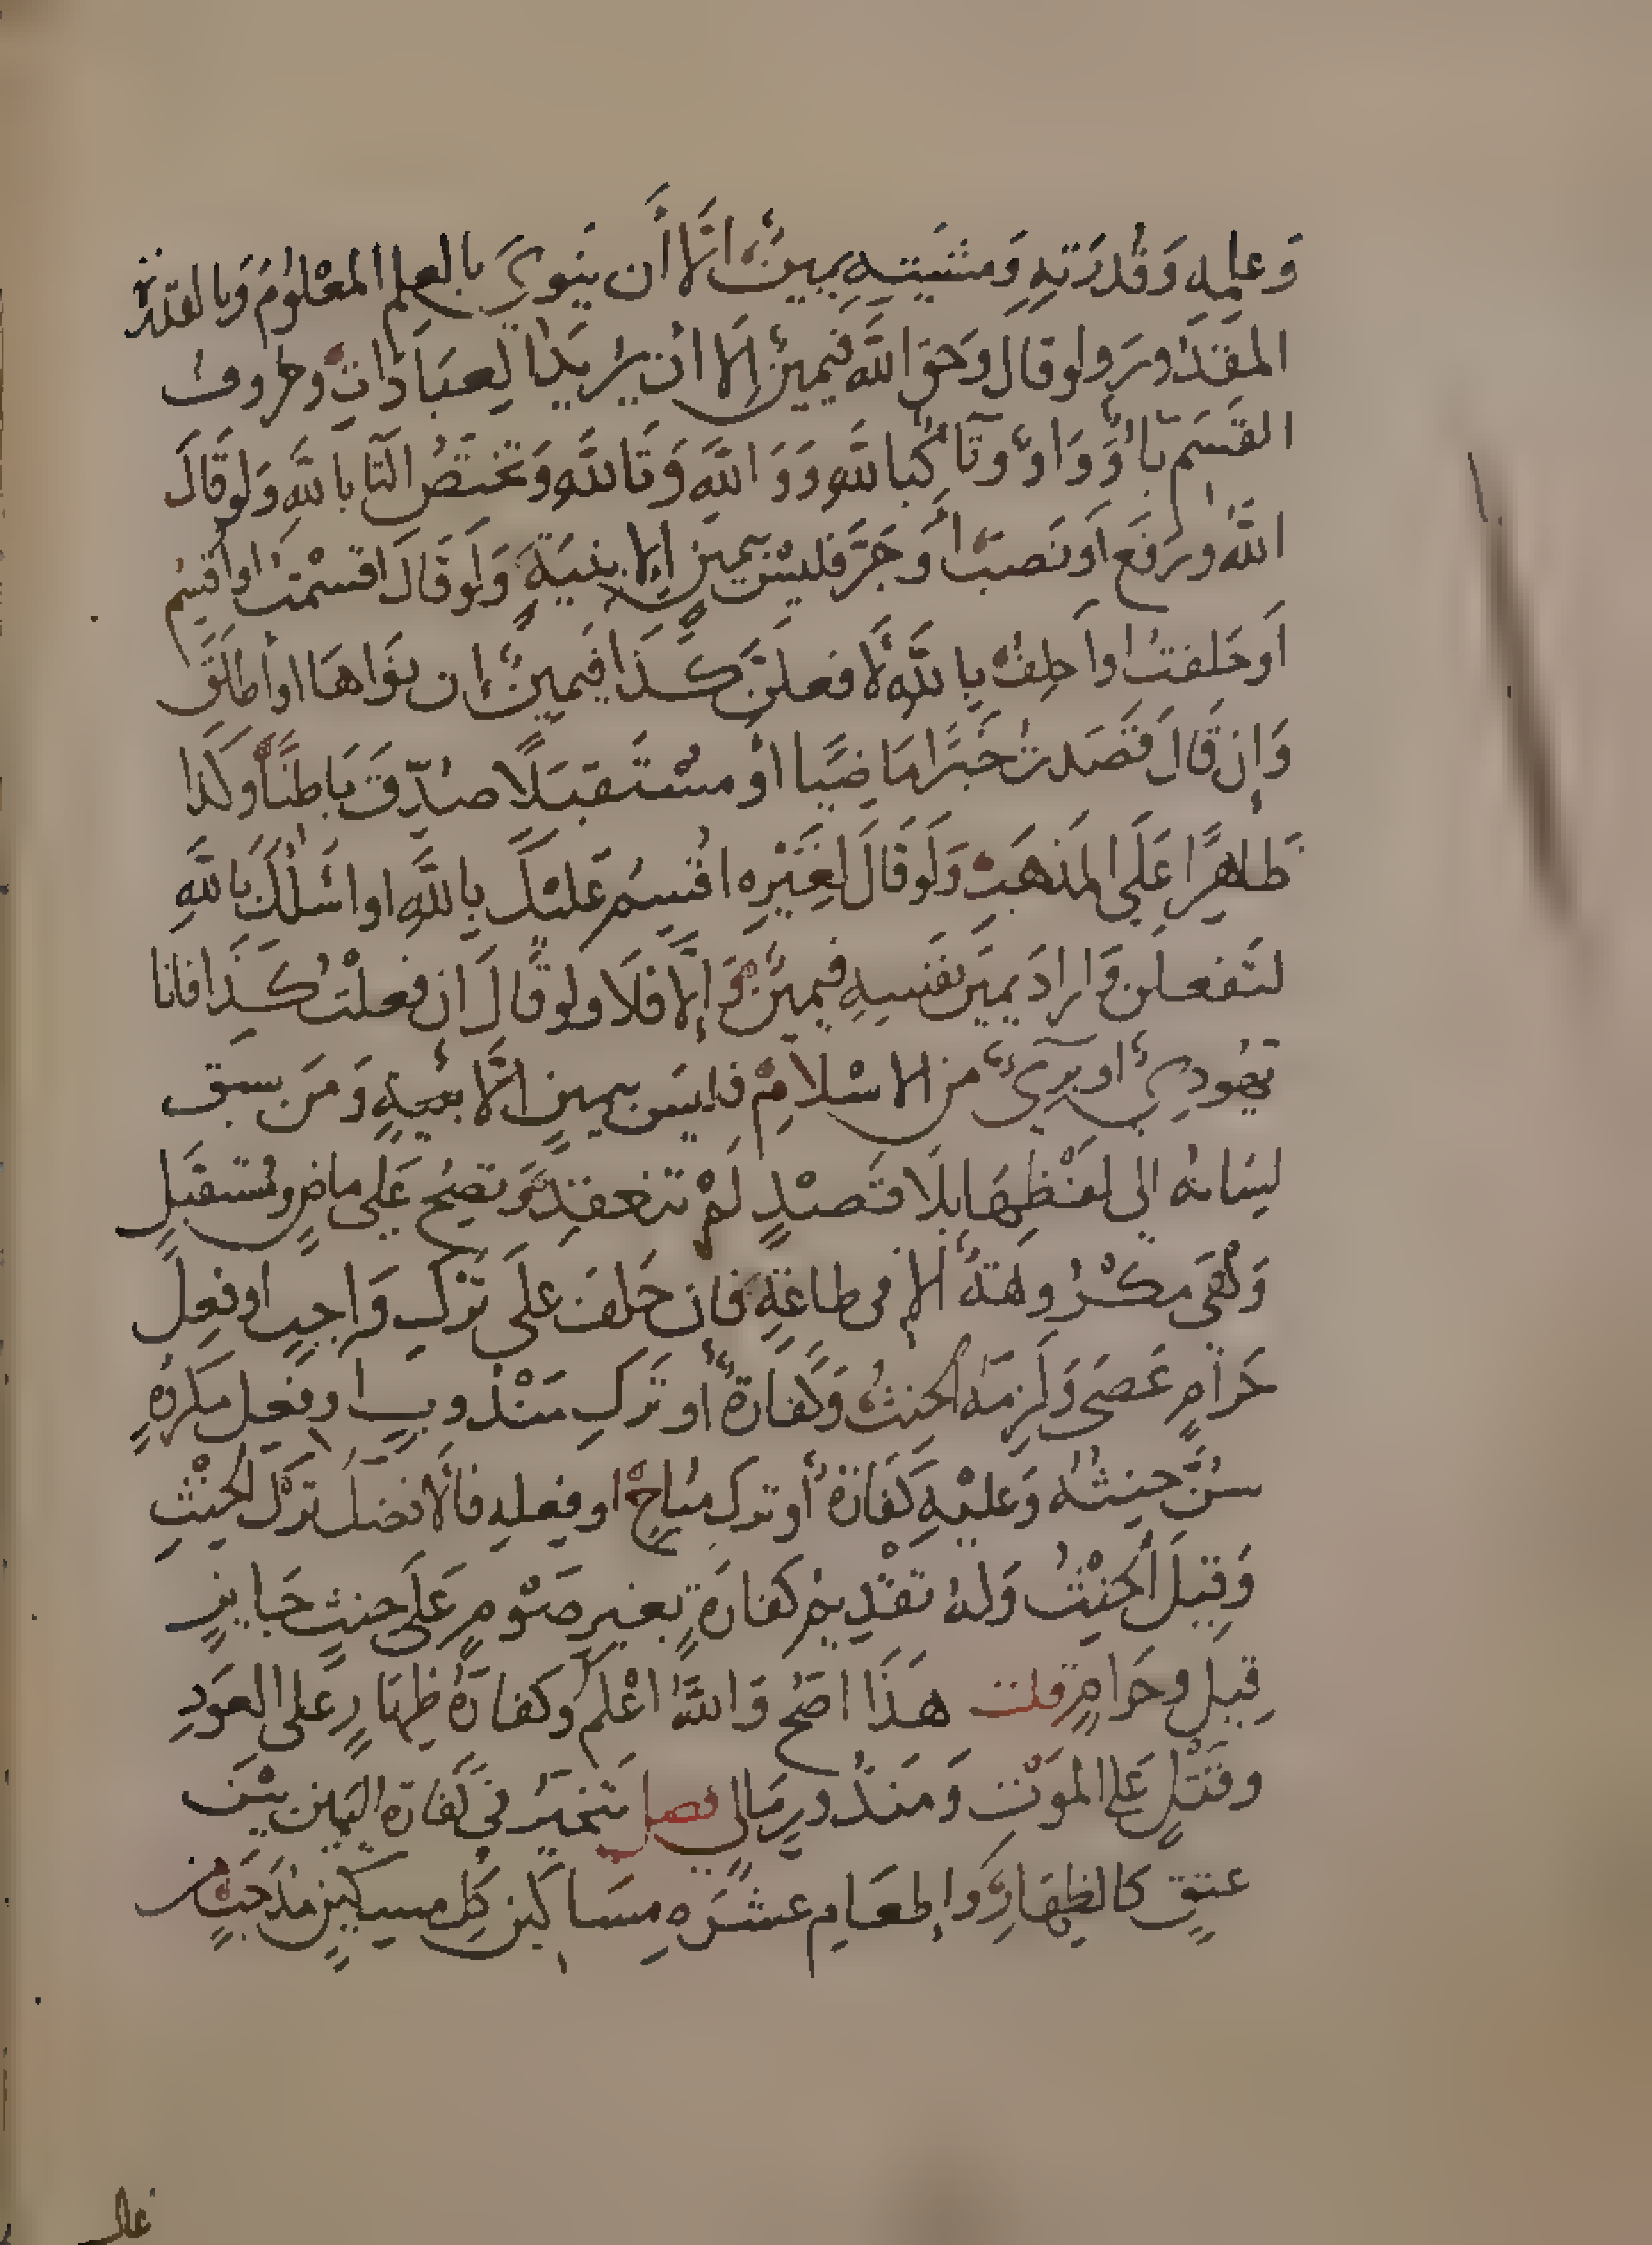 وَعِلمِهِ وَقُدرَتِهِ وَمشيَّتِهِ يمينٌ اِلَّا أَن يَنوِيَ بالعِلمِ المَعْلُومَ وَبالقدْرَةِ
المَقدُورَ ولو قال وَحَقِ اللَّهِ فيَمينٌ إِلَّا ان يُرِيدَ العِبَادَاتِ وحروفُ
القَسَمِ بَاءٌ وَوَاوٌ وتَآءٌ كَبِاللَّهِ وَوَاللَّهِ وَتَاللَّهِ وَتختَصُّ التَّا بِاللَّهِ وَلو قَالَ
اللَّهُ ورَفَع أَو نَصَبَ أَوَ جَرَّ فليسَ بيمينٍ اِلا بِنيَةٍ وَلَو قَالَ اقسَمْتُ او اقسِمُ
أَو حَلفتُ او اَحلِفُ بِاللَّهِ لَافعلنَّ كَذَا فيَمِينٌ إِن نَوَاهَا او أطلَقَ
وَاِن قَالَ قَصَدتُ خَبَرًا مَاضِيًا اَوْ مُسْتَقبَلًا صُدِّقَ بَاطنًا وكذا
ظَاهِرًا عَلَى المَذهَبِ وَلَو قَالَ لغَيْرِه اقْسِمُ عَلَيْكَ بِاللَّهِ او اسْئَلُكَ بِاللَّهِ
لتَفعلن وَاراَدَ يَمينَ نَفسِهِ فيَمينٌ وَاِلَّا فَلَا ولو قَالَ اِن فعلْتُ كَذَا فانا
يَهُودِيٌ او بَرِيٌ من الاِسْلَامِ فليسَ بيمينٍ اِلَّا بنيةٍ وَمَن سبق
لِسَانُه الى لَفْظِهَا بِلَا قَصْدٍ لَمْ تنعقِد وَتَصِحُّ عَلى ماضٍ ومُستقبَلٍ
وَهْىَ مَكْرُوهَةٌ اِلا فى طاعَةٍ فَاِن حَلَفَ عَلَى تَرْكِ وَاجِبٍ او فِعلِ
حَرَامٍ عَصَى وَلَزِمَهُ الحِنثُ وَكَفارَةٌ أو تَركِ مَنْدُوبٍ او فِعلِ مكروُهٍ
سُنَّ حِنثُهُ وَعَليْهِ كَفَّارَةٌ أو تركِ مُبَاحٍ او فِعلهِ فالاَفضَلُ تَركُ الحِنْثِ
وَقِيلَ الحِنْثُ وَلَهُ تَقْدِيمُ كَفارَةٍ بغيرِ صَوْمٍ عَلَى حِنثٍ جَايزٍ
قِيلَ وحَرامٍ قلت هَذَا اصَحُّ وَاللَّهُ اعْلَمُ وكَفارَةُ ظِهَارٍ عَلى العَوَدِ
وقَتْلٍ عَلى المَوْتِ وَمَنذُورٍ مَالىٍّ فصل يتخيَّرُ فِى كَفارَةِ اليَمينِ بَيْنَ
عِتقٍ كالظِهَارِ وَاِطعَامِ عشَرَةِ مَسَاكِينَ كلِ مِسكينٍ مُدَّ حَبٍّ مِن
غالب